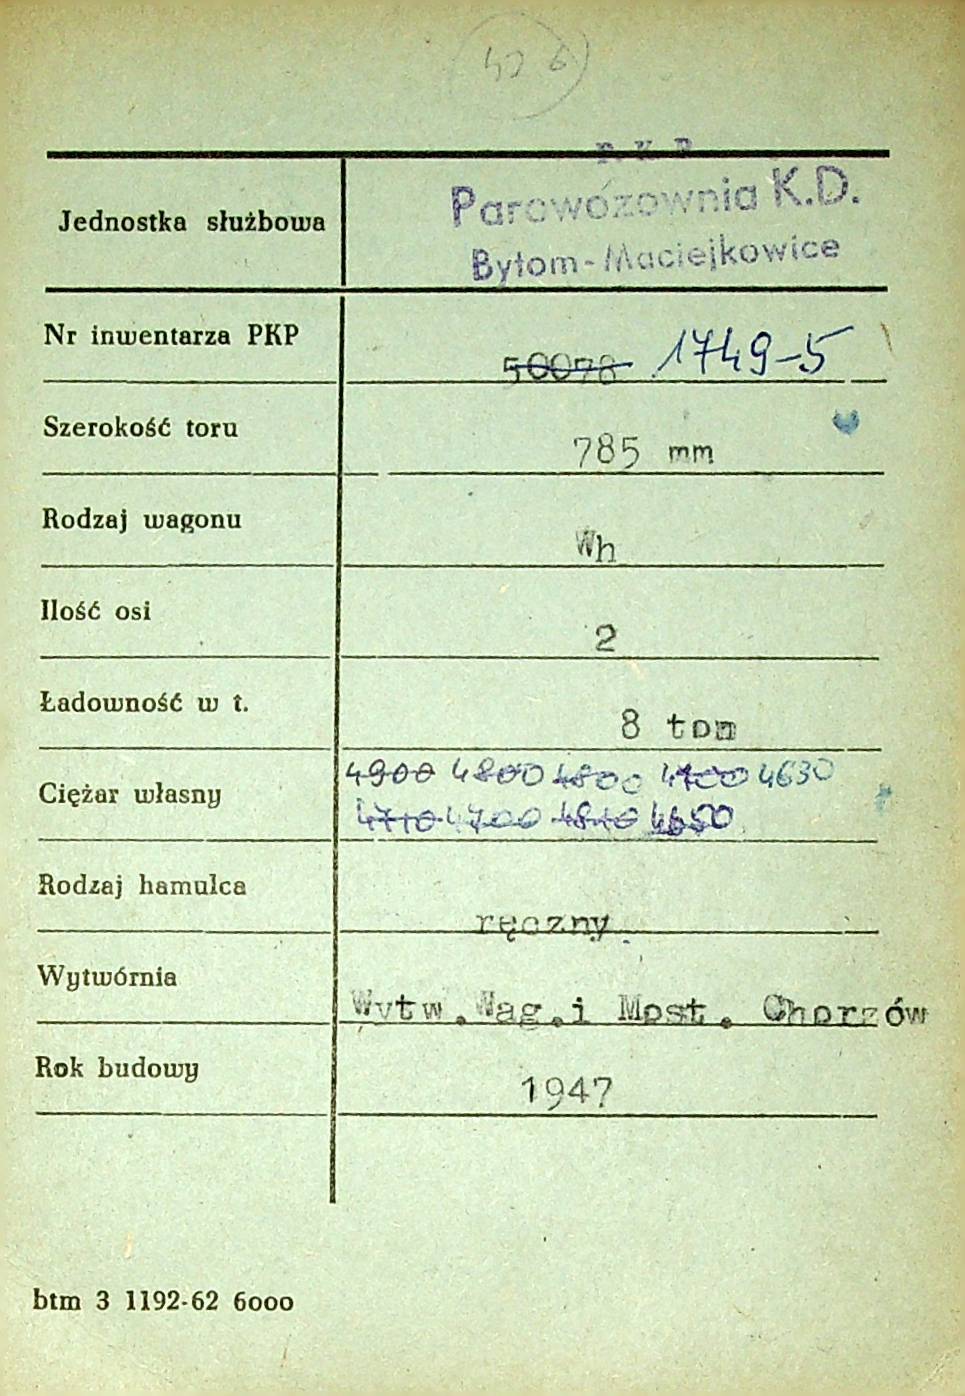 P.K.P.
Jednostka służbowa Parowozownia K.D.
Bytom-Maciejkowice
Nr inwentarza PKP 50078 1749-5
Szerokość toru 785 mm
Rodzaj wagonu Wh
Ilość osi 2
Ładowność w t. 8 ton
Ciężar własny 4900 4800 4800 4700 4630
4710 4700 4810 4650
Rodzaj hamulca ręczny
Wytwórnia Wytw.Wag.i Most. Chorzów
Rok budowy 1947
btm 3 1192-62 6000